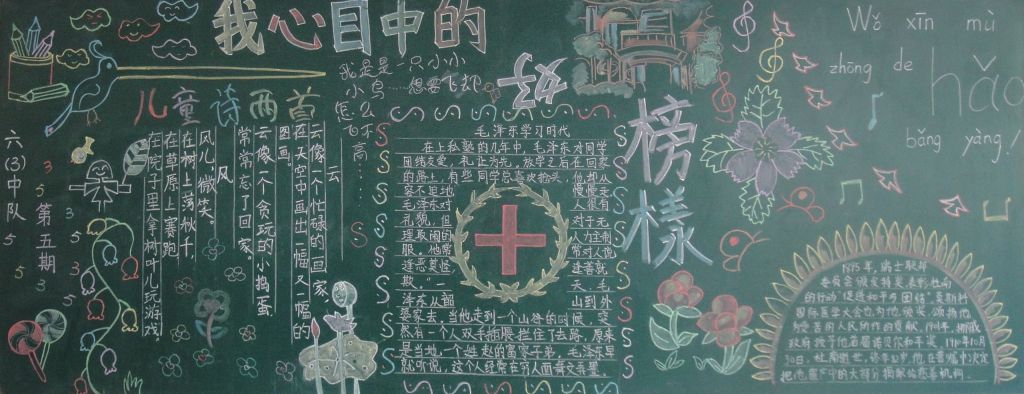 我心目中的
好
榜样
Wǒ xīn mù
zhōng de
hǎo
bǎng yàng!
六(3)中队
第五期
儿童诗两首
我是是一只小小
小鸟……想要飞却
怎么
飞不
高……
云
云像一个忙碌的画家,
在天空中画出一幅又一幅的
图画。
云像一个贪玩的小捣蛋
常常忘了回家。
风
风儿,微笑。
在树上荡秋千,
在草原上赛跑
在院子里拿树叶儿玩游戏。
毛泽东学习时代
在上私塾的几年中,毛泽东对同学
团结友爱,礼让为先,放学之后在回家
的路上,有些同学总喜欢抬头,他却从
容不迫地 慢慢走
毛泽东对 人很有
礼貌,但 对于无
理取闹的
服,他常 常对人说
连恶莫怪 连善就
欺。”一 天,毛
泽东从韶 山到外
婆家去,当他走到一个山谷的时候,突
然有一个人双手插腰拦住了去路,原来
是当地一个姓赵的富家子弟,毛泽东早
就听说,这个人经常在穷人面前
的行动“促进和平与团结”
国际医学大会也为他颁奖,颂扬他
为受苦的人民所作的贡献,1901年,挪威
政府授予他首届诺贝尔和平奖,1910年10月
30日,杜南逝世,终年82岁,他在遗嘱中决定
把他